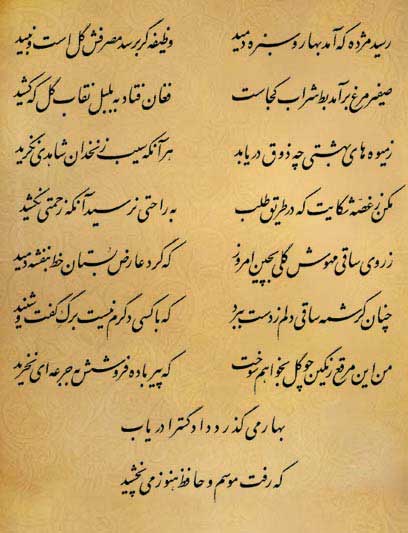 رسید مژده که آمد بهار و سبزه دمید وظیفه گر برسد مصرفش گل است و نبید
صفیر مرغ برآمد بط شراب کجاست فغان فتاد به بلبل نقاب گل که کشید
ز میوه های بهشتی چه ذوق دریابد هر آنکه سیب زنخدان شاهدی نگزید
مکن ز غصه شکایت که در طریق طلب به راحتی نرسید آنکه زحمتی نکشید
ز روی ساقی مهوش گلی بچین امروز که گرد عارض بستان خط بنفشه دمید
چنان کرشمه ساقی دلم ز دست ببرد که با کسی دگرم نیست برگ گفت و شنید
من این مرقع رنگین چو گل بخواهم سوخت که پیر باده فروشش به جرعه ای نخرید
بهار می گذرد دادگسترا دریاب
که رفت موسم و حافظ هنوز می نچشید